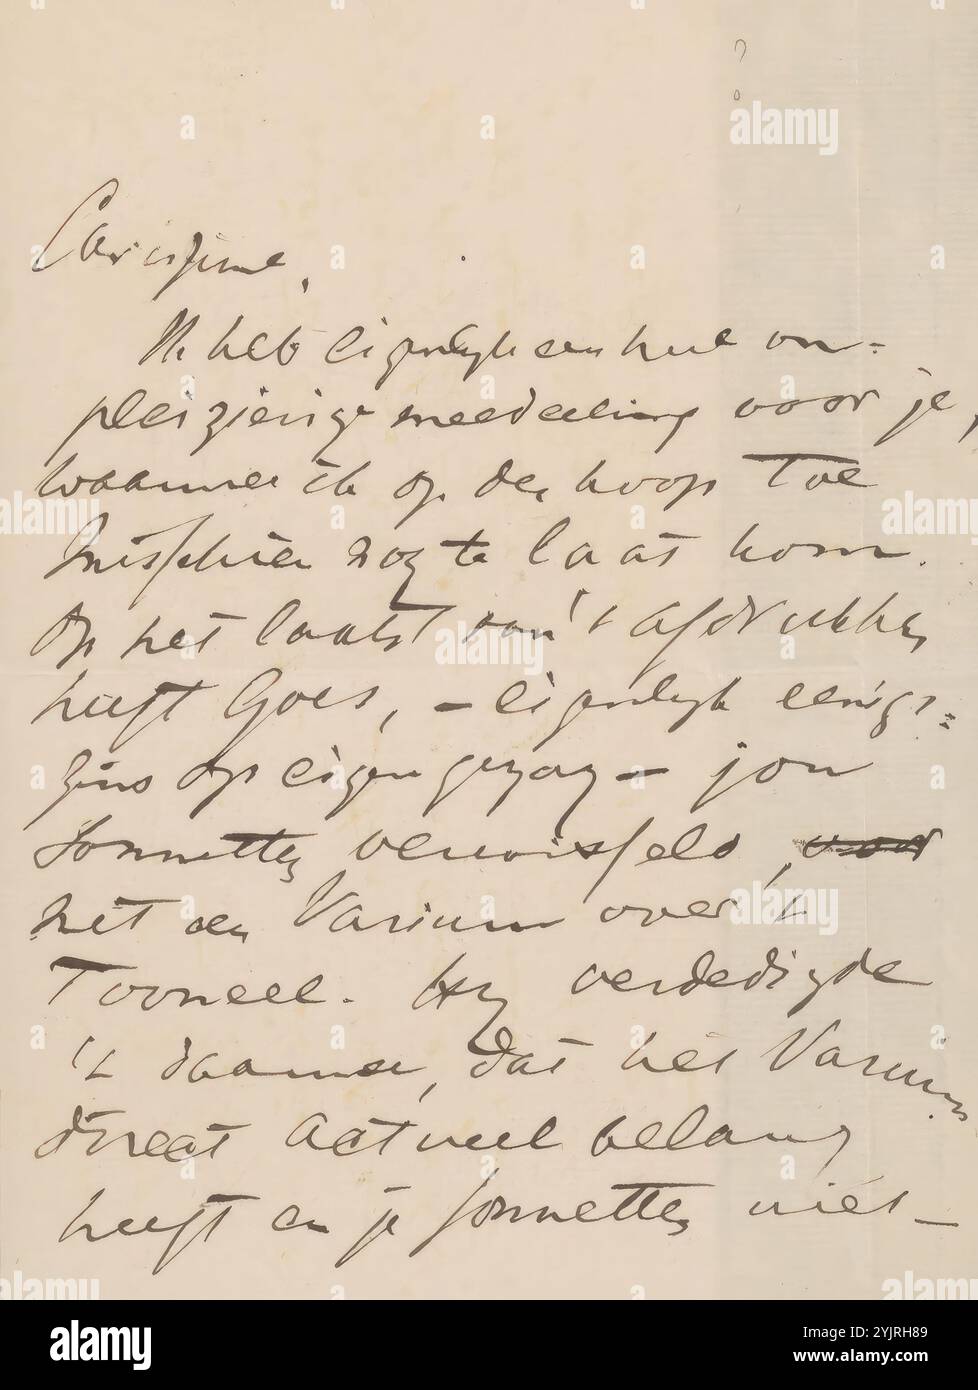 ?
Carissime,
Ik heb eigenlijk een heel on-
pleizierige meedeeling voor je,
waarmee ik op den koop toe
misschien nog te laat kom.
Op het laatst van 't afdrukken
heeft Goes, – eigenlijk eenigs=
zins op eigen gezag – jou
Sonnetten verwisseld, voor
met een Varium over 't
Tooneel. Hij verdedigde
't daarmee, dat het Varium
direct actueel belang
heeft en je Sonnetten niet –
alamy
Image ID: 2YJRH89
www.alamy.com